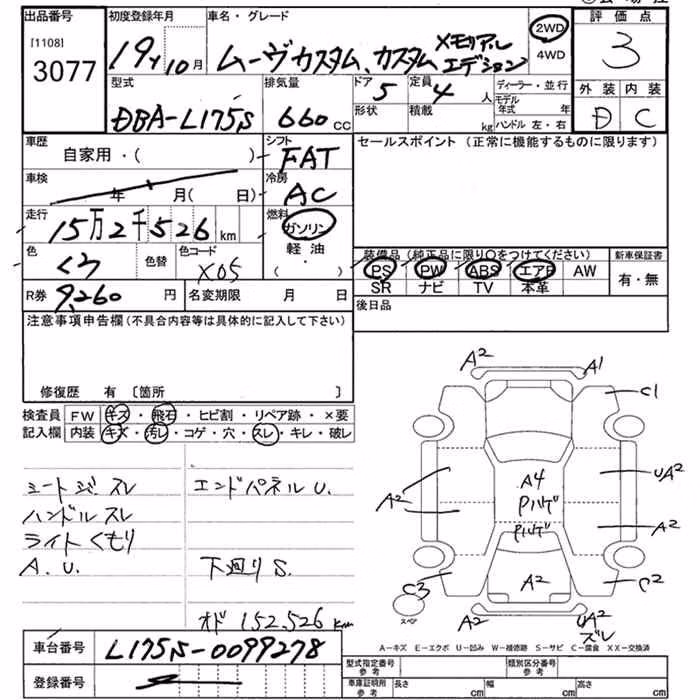 出品番号
[1108]
3077
初度登録年月
19y 10月
車名・グレード
ムーヴカスタム、カスタム メモリアルエディション
2WD
4WD
評価点
3
外装 内装
D C
型式
DBA-L175S
排気量
660 cc
ドア 5
定員 4 人
形状
積載 kg
ディーラー・並行
モデル年式 年
ハンドル 左・右
車歴
自家用・( )
シフト
FAT
車検
年 月( 日)
冷房
AC
走行
15万2千526 km
燃料
ガソリン
軽油
( ・ )
色
くろ
色替
色コード
X05
R券
9,260 円
名変期限 月 日
セールスポイント (正常に機能するものに限ります)
装備品 (純正品に限り○をつけてください)
PS PW ABS エアB AW
SR ナビ TV 本革
新車保証書
有・無
後日品
注意事項申告欄(不具合内容等は具体的に記入して下さい)
修復歴 有 〔箇所 〕
検査員 FW キズ・飛石・ヒビ割・リペア跡・×要
記入欄 内装 キズ・汚レ・コゲ・穴・スレ・キレ・破レ
シートシミ スレ
ハンドルスレ
ライトくもり
A.U.
エンドパネルU.
下廻りS.
オド 152,526 km
A2 A1
C1
A2
A4
Pハゲ
Pハゲ
UA2
A2
C3
A2
C2
スペア
A2
UA2
ズレ
A-キズ E-エクボ U-凹み W-補修跡 S-サビ C-腐食 XX-交換済
車台番号
L175S-0099278
登録番号
型式指定番号
参考
類別区分番号
参考
車庫証明所
参考
長さ cm
幅 cm
高さ cm